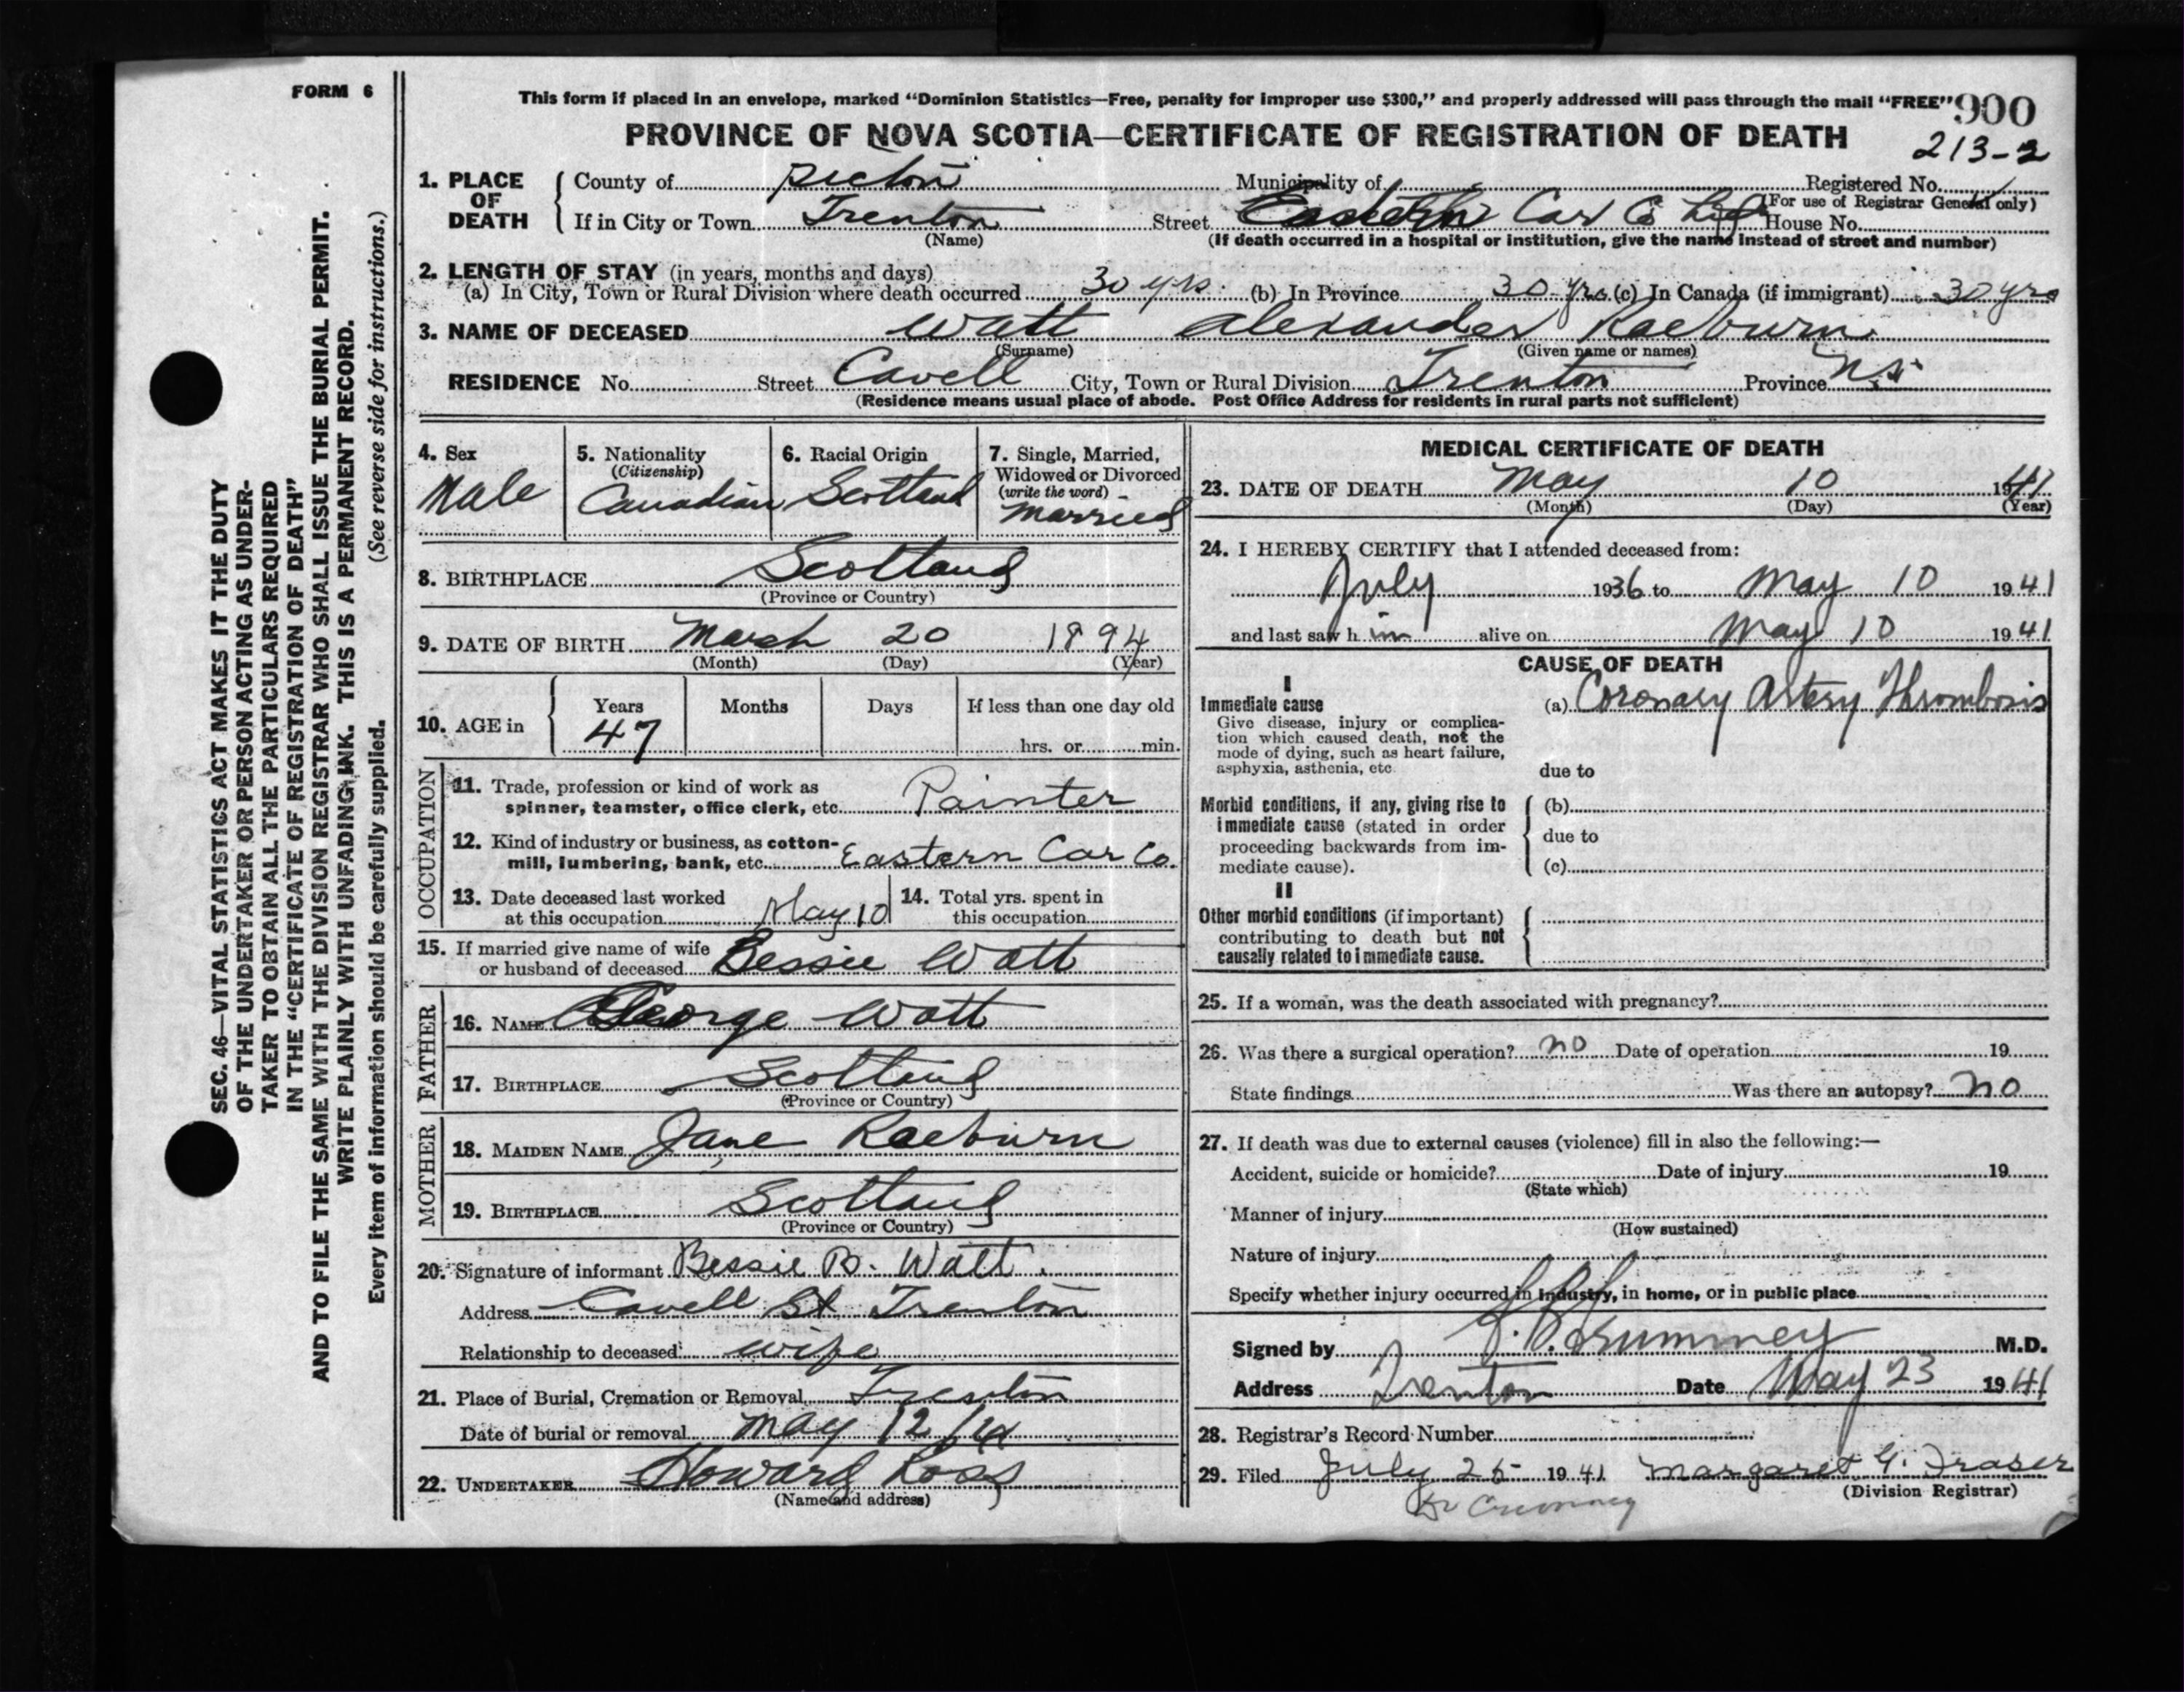 FORM 6
This form if placed in an envelope, marked “Dominion Statistics—Free, penalty for improper use $300,” and properly addressed will pass through the mail “FREE” 900
PROVINCE OF NOVA SCOTIA—CERTIFICATE OF REGISTRATION OF DEATH
213-2
1. PLACE OF DEATH
County of Pictou Municipality of Registered No.
(For use of Registrar General only)
If in City or Town Trenton Street Eastern Car Co House No.
(Name) (If death occurred in a hospital or institution, give the name instead of street and number)
2. LENGTH OF STAY (in years, months and days)
(a) In City, Town or Rural Division where death occurred 30 yrs. (b) In Province 30 yrs (c) In Canada (if immigrant) 30 yrs
3. NAME OF DECEASED Watt Alexander Raeburn
(Surname) (Given name or names)
RESIDENCE No. Street Cavell City, Town or Rural Division Trenton Province N.S.
(Residence means usual place of abode. Post Office Address for residents in rural parts not sufficient)
4. Sex
Male
5. Nationality
(Citizenship)
Canadian
6. Racial Origin
Scotland
7. Single, Married,
Widowed or Divorced
(write the word)
Married
8. BIRTHPLACE Scotland
(Province or Country)
9. DATE OF BIRTH March 20 1894
(Month) (Day) (Year)
10. AGE in
Years Months Days If less than one day old
47 hrs. or min.
OCCUPATION
11. Trade, profession or kind of work as
spinner, teamster, office clerk, etc. Painter
12. Kind of industry or business, as cotton-
mill, lumbering, bank, etc. Eastern Car Co.
13. Date deceased last worked
at this occupation May 10
14. Total yrs. spent in
this occupation
15. If married give name of wife
or husband of deceased Bessie Watt
FATHER
16. NAME George Watt
17. BIRTHPLACE Scotland
(Province or Country)
MOTHER
18. MAIDEN NAME Jane Raeburn
19. BIRTHPLACE Scotland
(Province or Country)
20. Signature of informant Bessie B. Watt
Address Cavell St Trenton
Relationship to deceased wife
21. Place of Burial, Cremation or Removal Trenton
Date of burial or removal May 12
22. UNDERTAKER Howard Ross
(Name and address)
MEDICAL CERTIFICATE OF DEATH
23. DATE OF DEATH May 10 1941
(Month) (Day) (Year)
24. I HEREBY CERTIFY that I attended deceased from:
July 1936 to May 10 1941
and last saw h im alive on May 10 1941
CAUSE OF DEATH
I
Immediate cause
Give disease, injury or complica-
tion which caused death, not the
mode of dying, such as heart failure,
asphyxia, asthenia, etc.
(a) Coronary Artery Thrombosis
due to
Morbid conditions, if any, giving rise to
immediate cause (stated in order
proceeding backwards from im-
mediate cause).
(b)
due to
(c)
II
Other morbid conditions (if important)
contributing to death but not
causally related to immediate cause.
25. If a woman, was the death associated with pregnancy?
26. Was there a surgical operation? no Date of operation 19
State findings Was there an autopsy? no
27. If death was due to external causes (violence) fill in also the following:—
Accident, suicide or homicide? Date of injury 19
(State which)
Manner of injury
(How sustained)
Nature of injury
Specify whether injury occurred in industry, in home, or in public place
Signed by M.D.
Address Trenton Date May 23 1941
28. Registrar's Record Number
29. Filed July 25 1941 Margaret G. Fraser
(Division Registrar)
SEC. 46—VITAL STATISTICS ACT MAKES IT THE DUTY
OF THE UNDERTAKER OR PERSON ACTING AS UNDER-
TAKER TO OBTAIN ALL THE PARTICULARS REQUIRED
IN THE “CERTIFICATE OF REGISTRATION OF DEATH”
AND TO FILE THE SAME WITH THE DIVISION REGISTRAR WHO SHALL ISSUE THE BURIAL PERMIT.
WRITE PLAINLY WITH UNFADING INK. THIS IS A PERMANENT RECORD.
Every item of information should be carefully supplied. (See reverse side for instructions.)